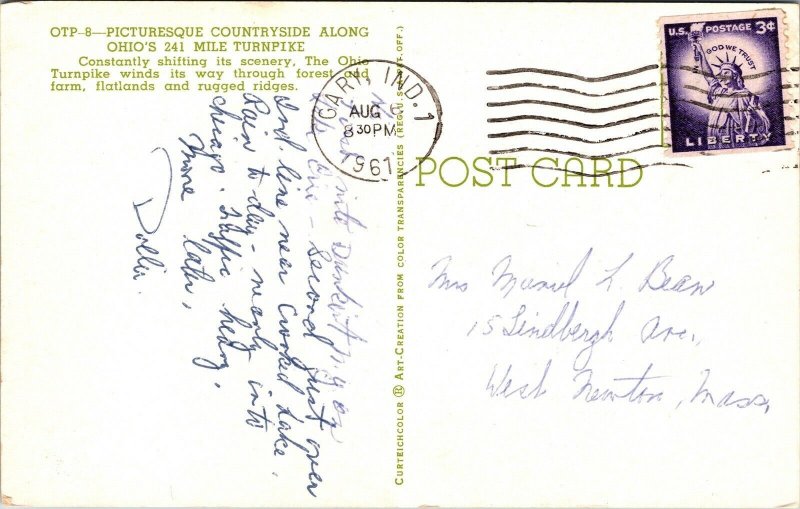 OTP-8—PICTURESQUE COUNTRYSIDE ALONG
OHIO'S 241 MILE TURNPIKE
Constantly shifting its scenery, The Ohio
Turnpike winds its way through forest and
farm, flatlands and rugged ridges.
into Dunkirk N.Y. on
Lake Erie - Second just over
Ind line near Crooked Lake.
Rain to day - nearly into
Chicago. Traffic heavy.
More later,
Dollie.
CURTEICHCOLOR ® ART-CREATION FROM COLOR TRANSPARENCIES (REG. U.S. PAT. OFF.)
GARY, IND. 1
AUG 6
8 30 PM
1961
U.S. POSTAGE 3¢
IN GOD WE TRUST
LIBERTY
POST CARD
Mrs Muriel L. Bean
15 Lindbergh Ave.,
West Newton, Mass,